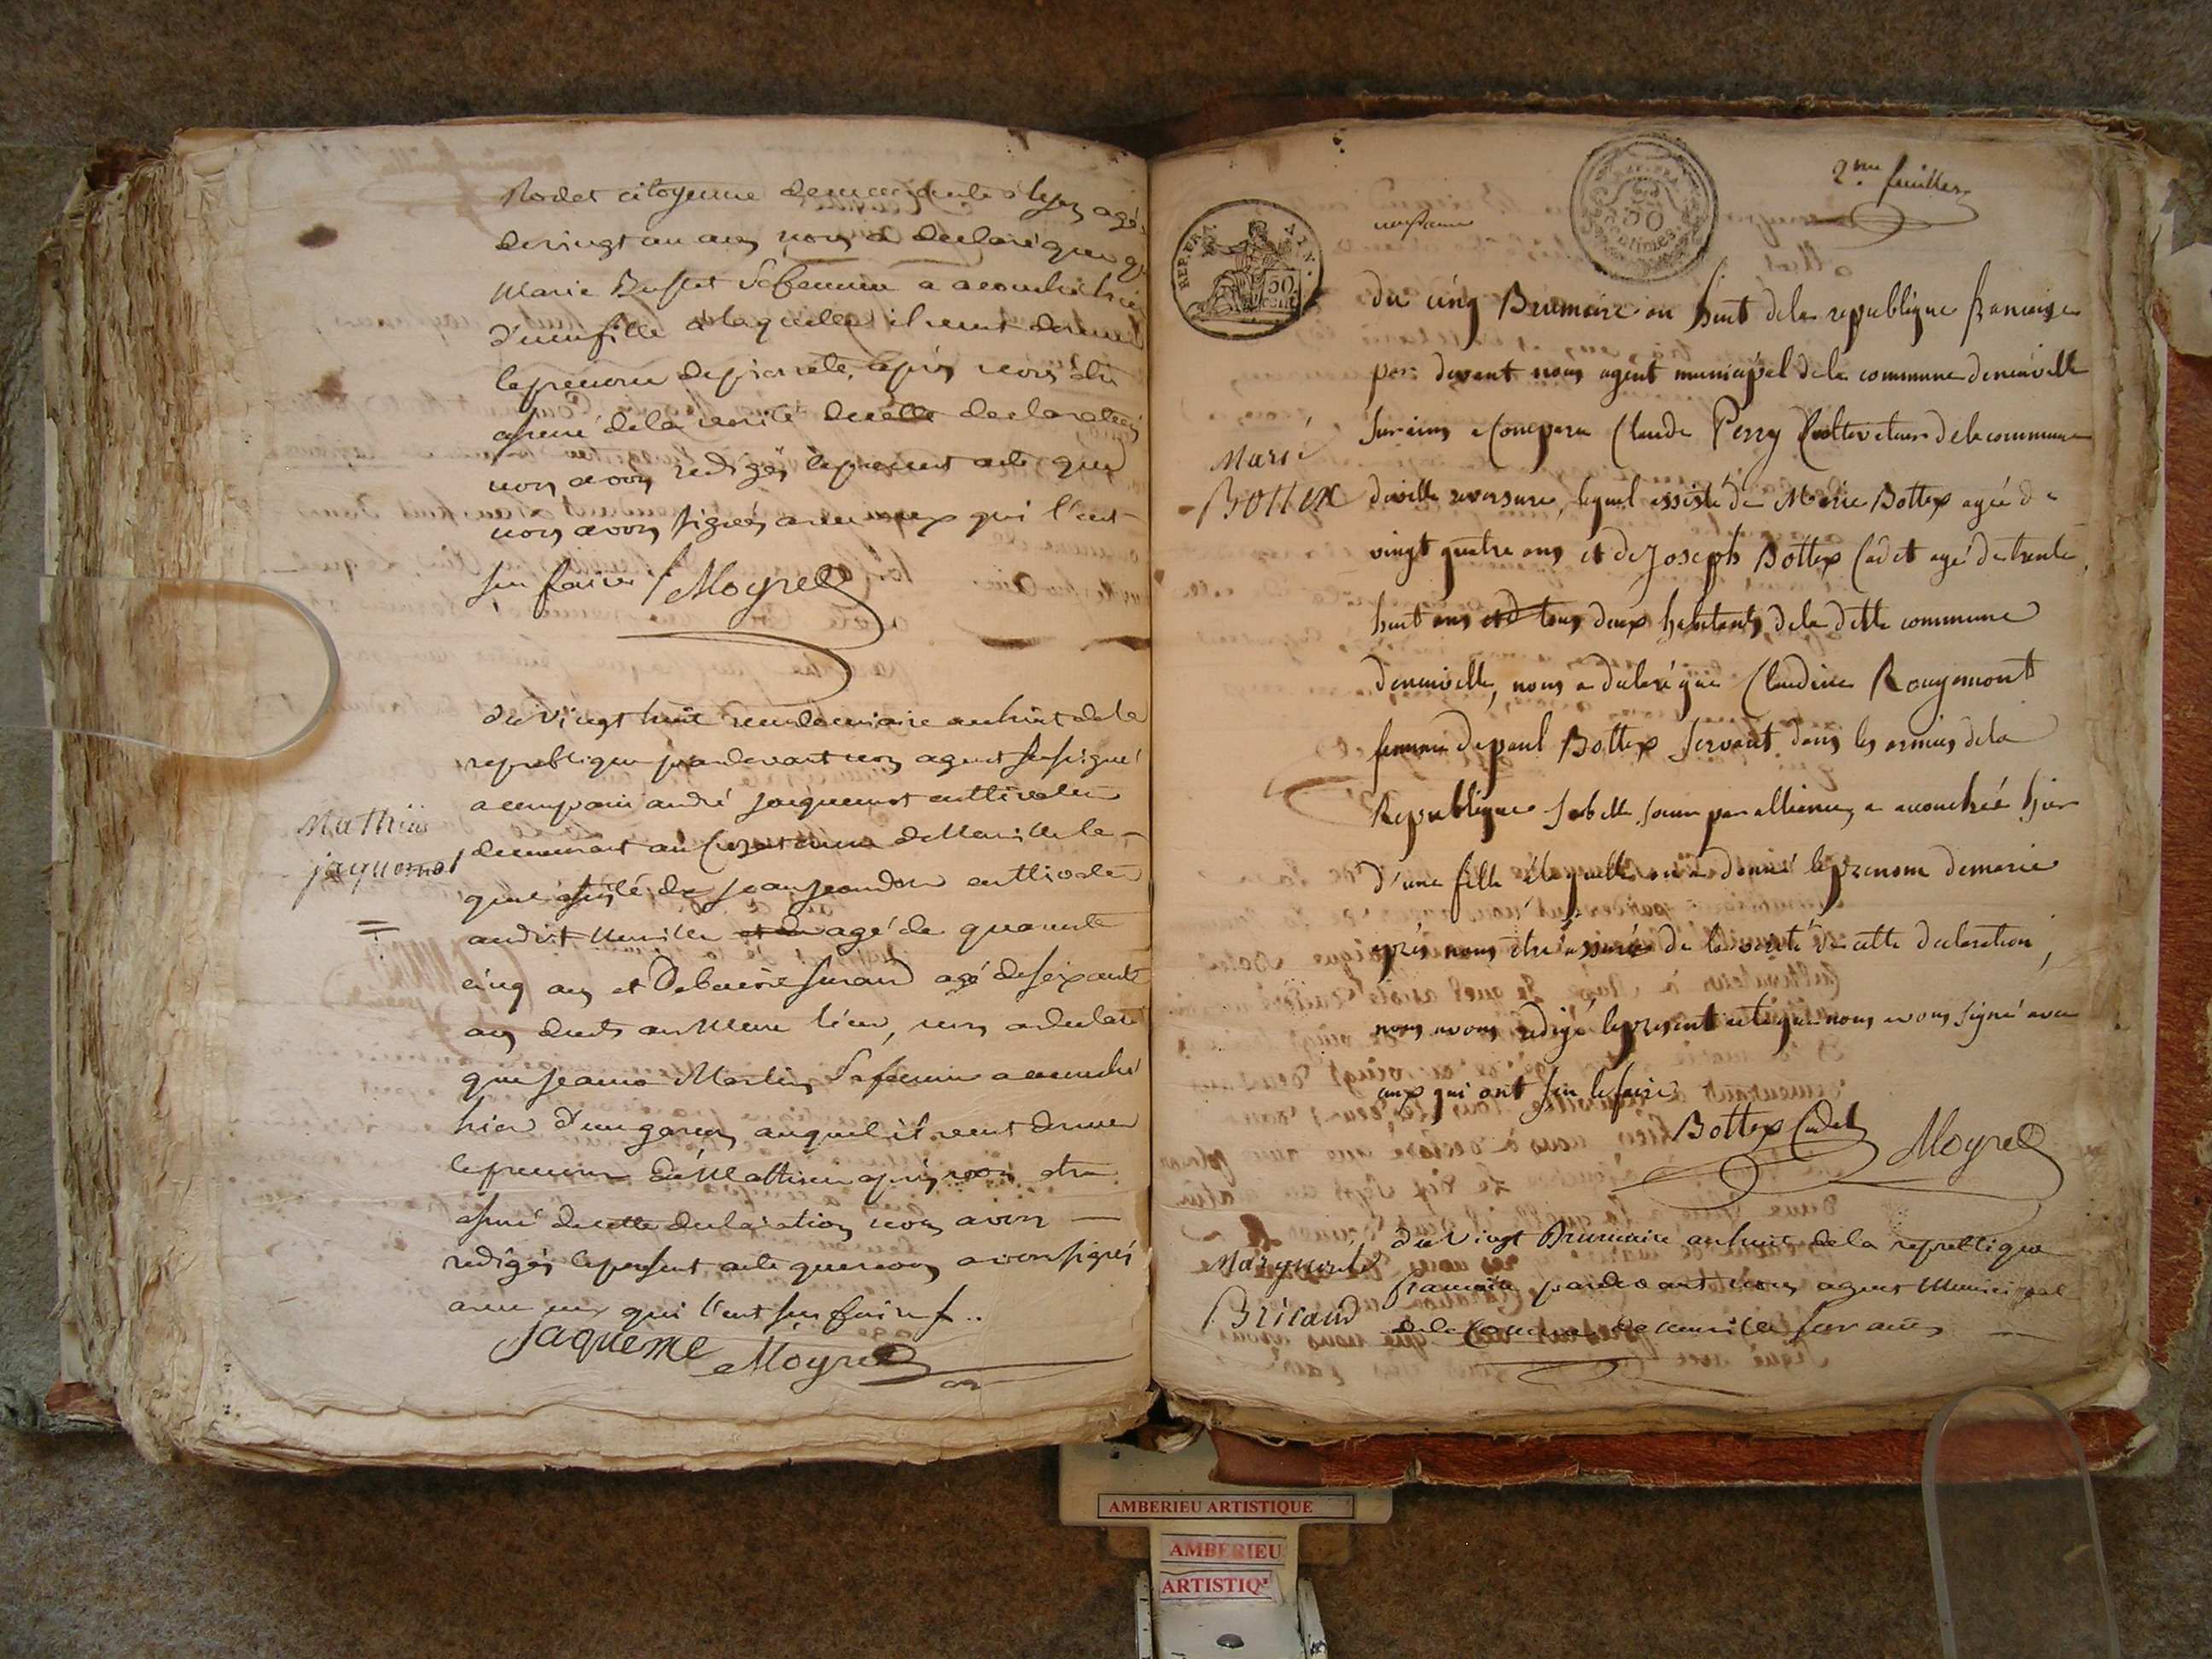 Rodet citoyenne demeurante à agé
de vingt un ans, nous a declaré que
Marie Buffet sa femme a accouché hier
d'une fille a laquelle il veut donner
le prenom de pierrete, après nous être
assuré de la verité de cette declaration
nous avons redigés le present acte que
nous avons signés avec ceux qui l'ont
su faire Moyret
du vingt huit vendemiaire an huit de la
republique par devant nous agent soussigné
a comparu andré jacquemot cultivateur
demeurant au de Neuville le-
quel assisté de jean cultivateur
audit Neuville et de agé de quarante
cinq ans et agé de soixante
ans dudit même lieu, nous a declaré
que jeanne Martin sa femme a accouché
hier d'un garçon auquel il veut donner
le prenom de Mathieu après nous etre
assuré de cette declaration nous avons
redigés le present acte que nous avons signés
avec ceux qui l'ont su faire
jaqueme Moyret
Mathieu
jaquemot
2me feuillet
REP. FRA.
50
centimes
REP. FRA.
50
cent
naissance
du cinq Brumaire an huit de la republique francaise
par devant nous agent municipal de la commune de neuville
sur ains a Conparu Claude Perry Cultivateur de la commune
de ville reversure, lequel assisté de Marie Bottex agée de
vingt quatre ans et de Joseph Bottex Cadet agé de trente
huit ans et d tous deux habitants de la ditte commune
de neuville, nous a declaré que Claudine Rougemont
femme de paul Bottex servant dans les armées de la
Republique sa belle soeur par alliance, a accouchée hier
d'une fille a laquelle on a donné le prenom de marie
après nous être assurés de la verité de cette declaration,
nous avons redigé le present acte que nous avons signé avec
ceux qui ont su le faire
Bottex Cadet Moyret
Marie
Bottex
du vingt Brumaire an huit de la republique
francaise par devant nous agent Municipal
de la Commune de neuville sur ains
Marguerite
Bricaud
AMBERIEU ARTISTIQUE
AMBERIEU
ARTISTIQ